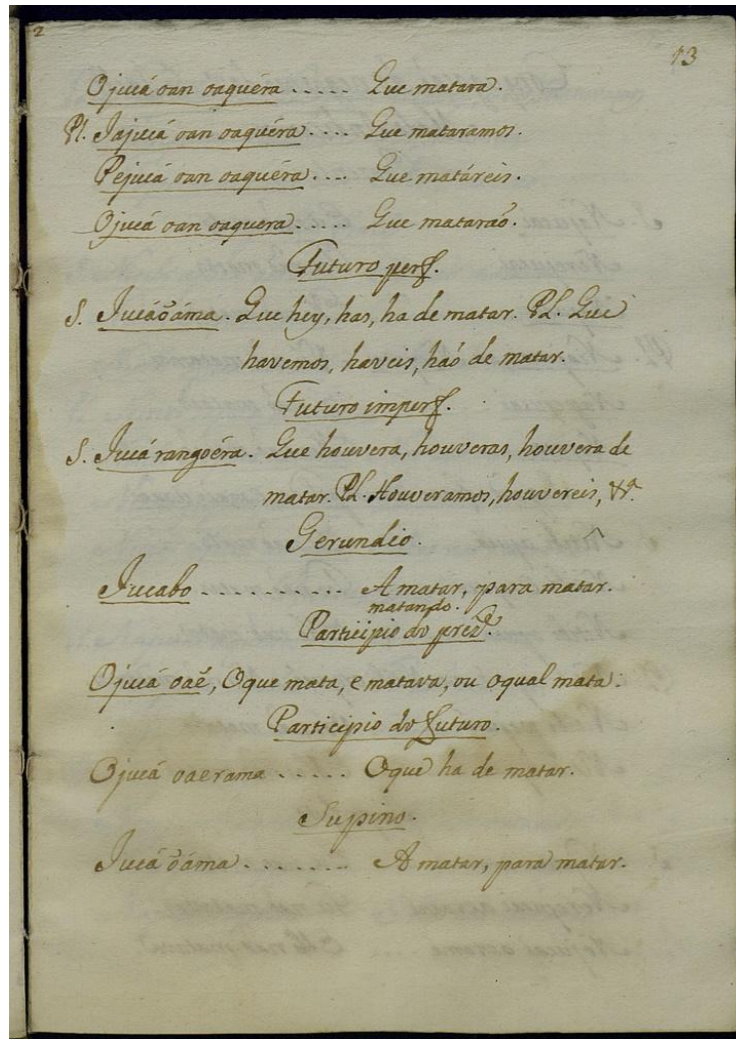 2
13
Ojucá oan oaquéra ..... Que matara.
Pl. Jajucá oan oaquéra .... Que mataramos.
Pejucá oan oaquéra .... Que matáreis.
Ojucá oan oaquera ..... Que mataraõ.
Futuro perf.
S. Jucáõáma. Que hey, has, ha de matar. Pl. Que
havemos, haveis, haó de matar.
Futuro imperf.
S. Jucá rangoéra. Que houvera, houveras, houvera de
matar. Pl. Houveramos, houvereis, &ª.
Gerundio.
Jucabo .......... A matar, para matar.
matando.
Participio do prezte.
Ojucá oaé, O que mata, e matava, ou o qual mata.
Participio do futuro.
Ojucá oaerama ..... O que ha de matar.
Supino.
Jucá õáma ........ A matar, para matar.